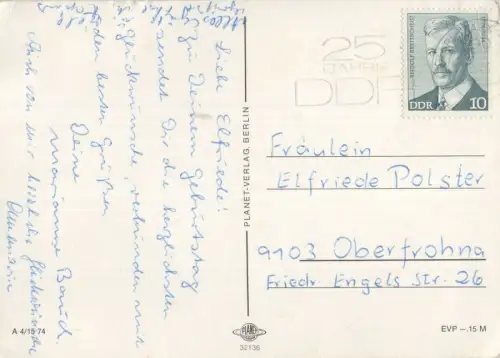 Liebe Elfriede!
Zu Deinem Geburtstag
sendet Dir die herzlichsten
Glückwünsche, verbunden mit
den besten Grüßen
Deine
Marianne
Auch von mir herzliche Glückwünsche
PLANET-VERLAG, BERLIN
25
JAHRE
DDR
RUDOLF BREITSCHEID
DDR 10
Fräulein
Elfriede Polster
9103 Oberfrohna
Friedr. Engels Str. 26
A 4/15 74
PLANET
32136
EVP –.15 M